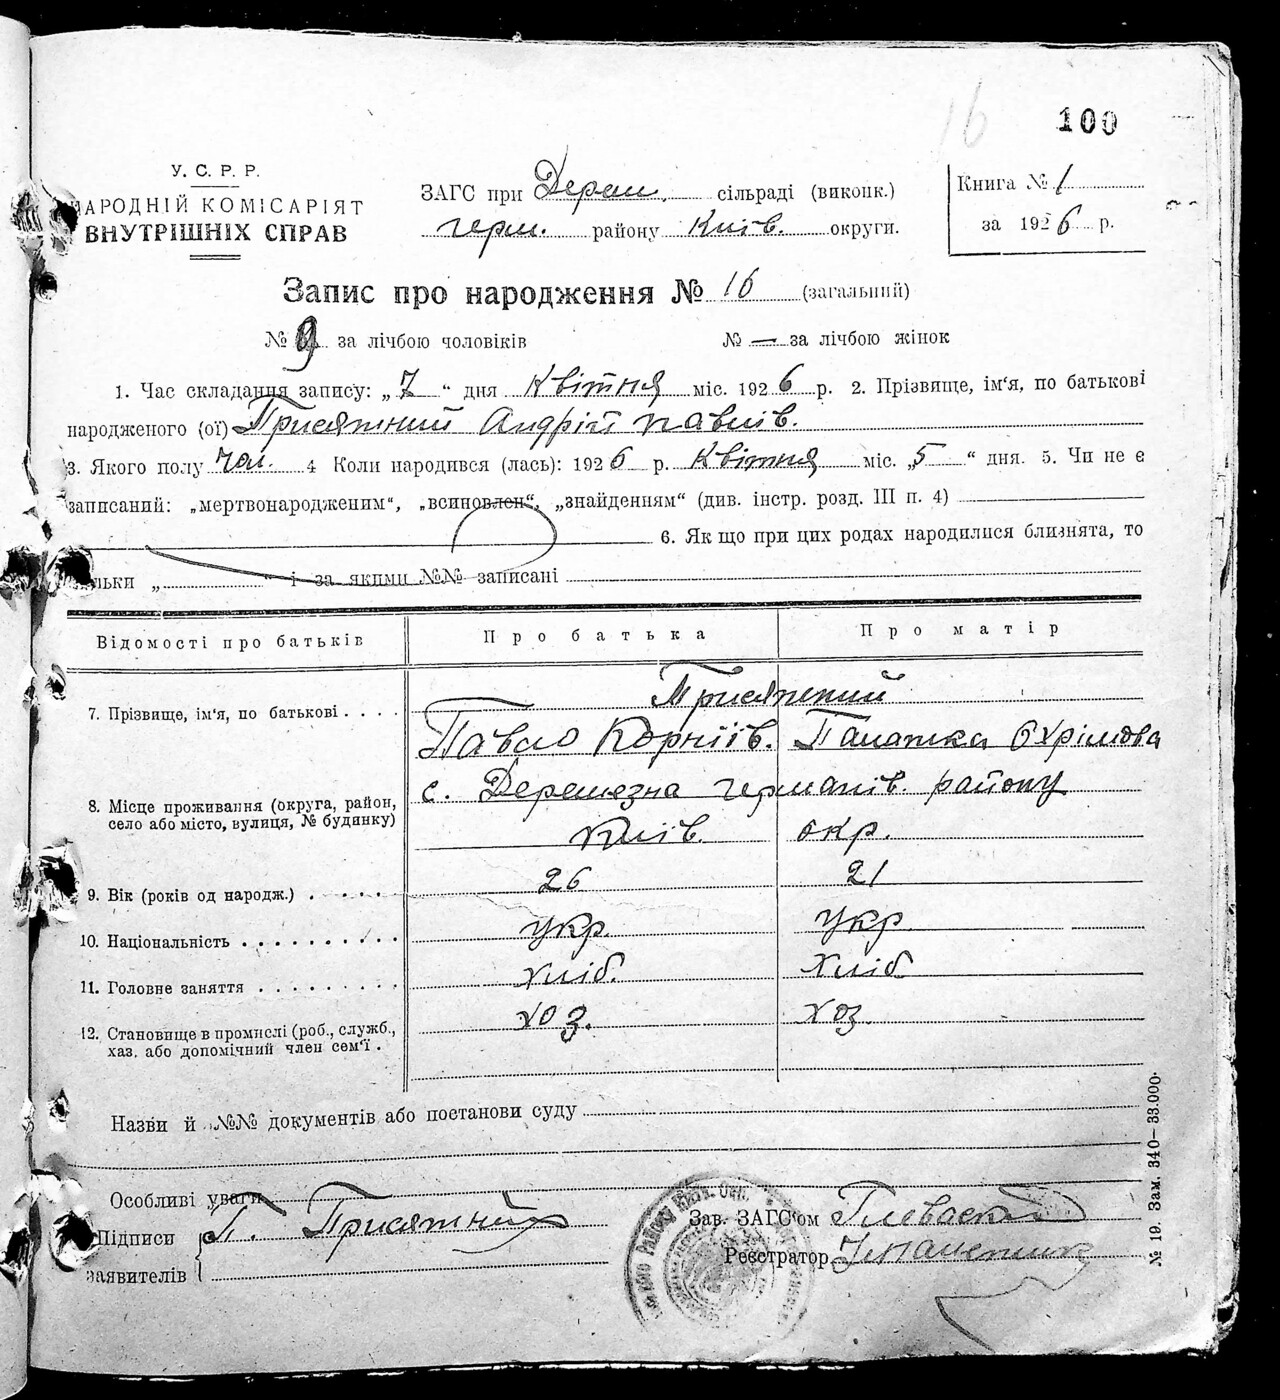 16
100
У. С. Р. Р.
НАРОДНІЙ КОМІСАРІЯТ
ВНУТРІШНІХ СПРАВ
ЗАГС при Дерем. сільраді (виконк.)
герм. району Київ. округи.
Книга № 1
за 1926 р.
Запис про народження № 16 (загальний)
№ 9 за лічбою чоловіків № — за лічбою жінок
1. Час складання запису: „7“ дня Квітня міс. 1926 р. 2. Прізвище, ім'я, по батькові
народженого (ої) Присяжний Андрій Павлів.
3. Якого полу чол. 4 Коли народився (лась): 1926 р. Квітня міс. „5“ дня. 5. Чи не є
записаний: „мертвонародженим“, „всиновлен“, „знайденням“ (див. інстр. розд. III п. 4)
6. Як що при цих родах народилися близнята, то
кільки „ “ і за якими №№ записані
Відомості про батьків Про батька Про матір
7. Прізвище, ім'я, по батькові . . . .
Присяжний
Павло Корніїв. Палажка Охрімова
8. Місце проживання (округа, район, село або місто, вулиця, № будинку)
с. Деремезна германів. району
Київ. окр.
9. Вік (років од народж.) . . . . . 26 21
10. Національність . . . . . . . . . . укр. укр.
11. Головне заняття . . . . . . . . . хліб. хліб
12. Становище в промислі (роб., служб., хоз. хоз
хаз. або допомічний член сем'ї .
Назви й №№ документів або постанови суду
Особливі уваги
Підписи заявителів П. Присяжний
Зав. ЗАГС'ом
Реєстратор
№ 19. Зам. 340—33.000.